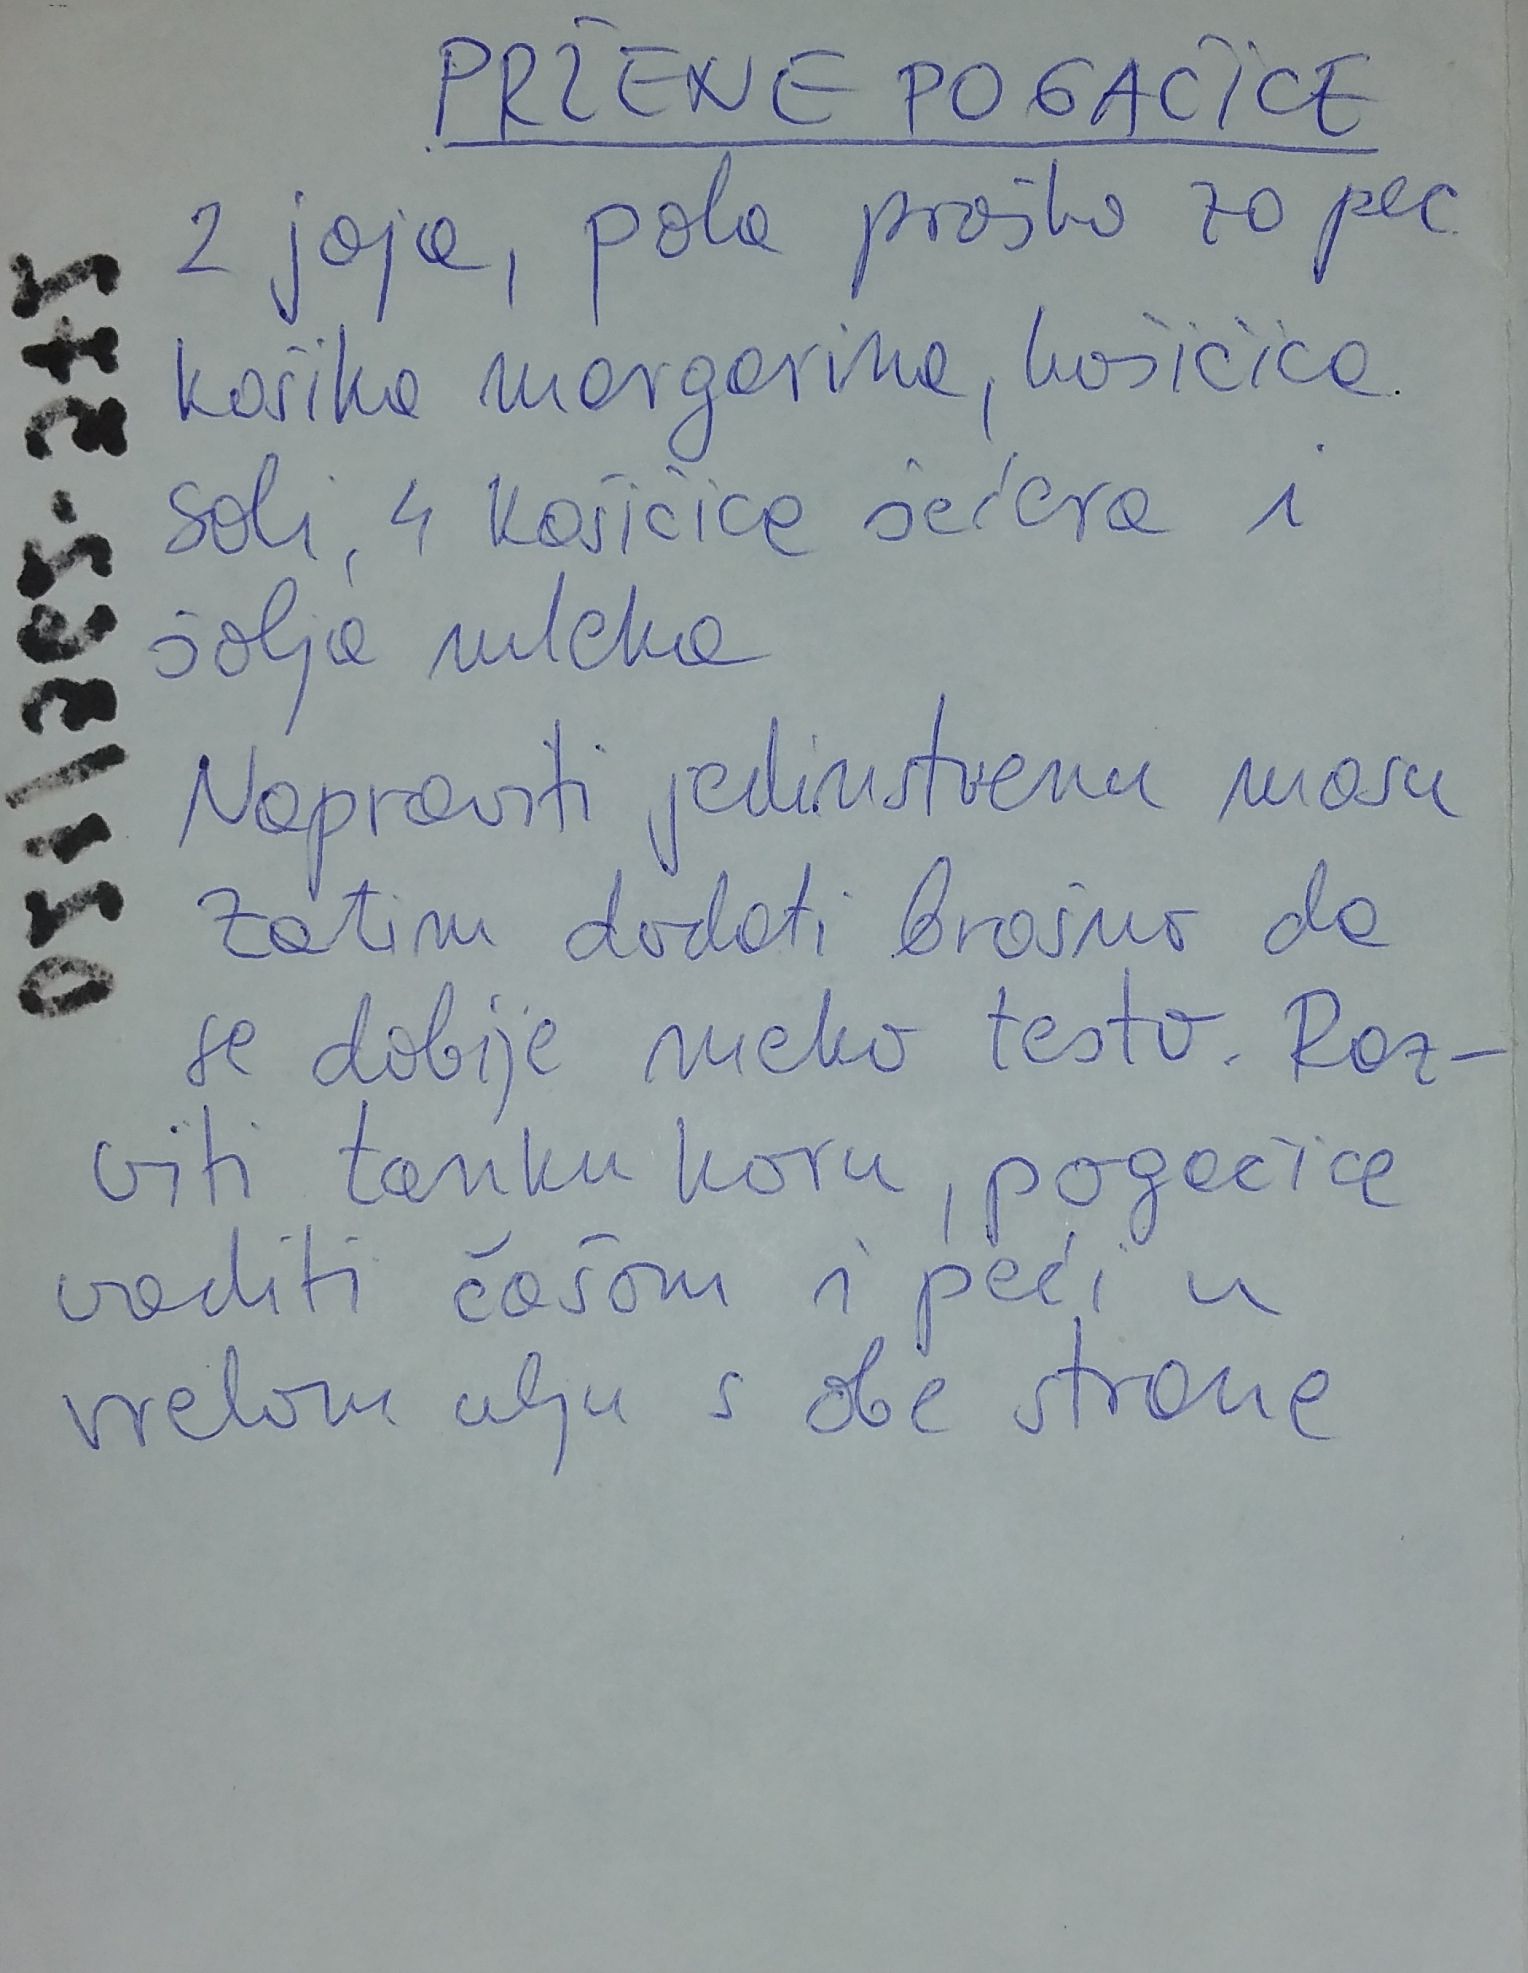 PRŽENE POGAČICE
2 jaja, pola praška za pec.
kašika margarina, kašičica
soli, 4 kašičice šećera i
šolja mleka
Napraviti jedinstvenu masu
Zatim dodati brašno da
se dobije meko testo. Raz-
viti tanku koru, pogačice
vaditi čašom i peći u
vrelom ulju s obe strane